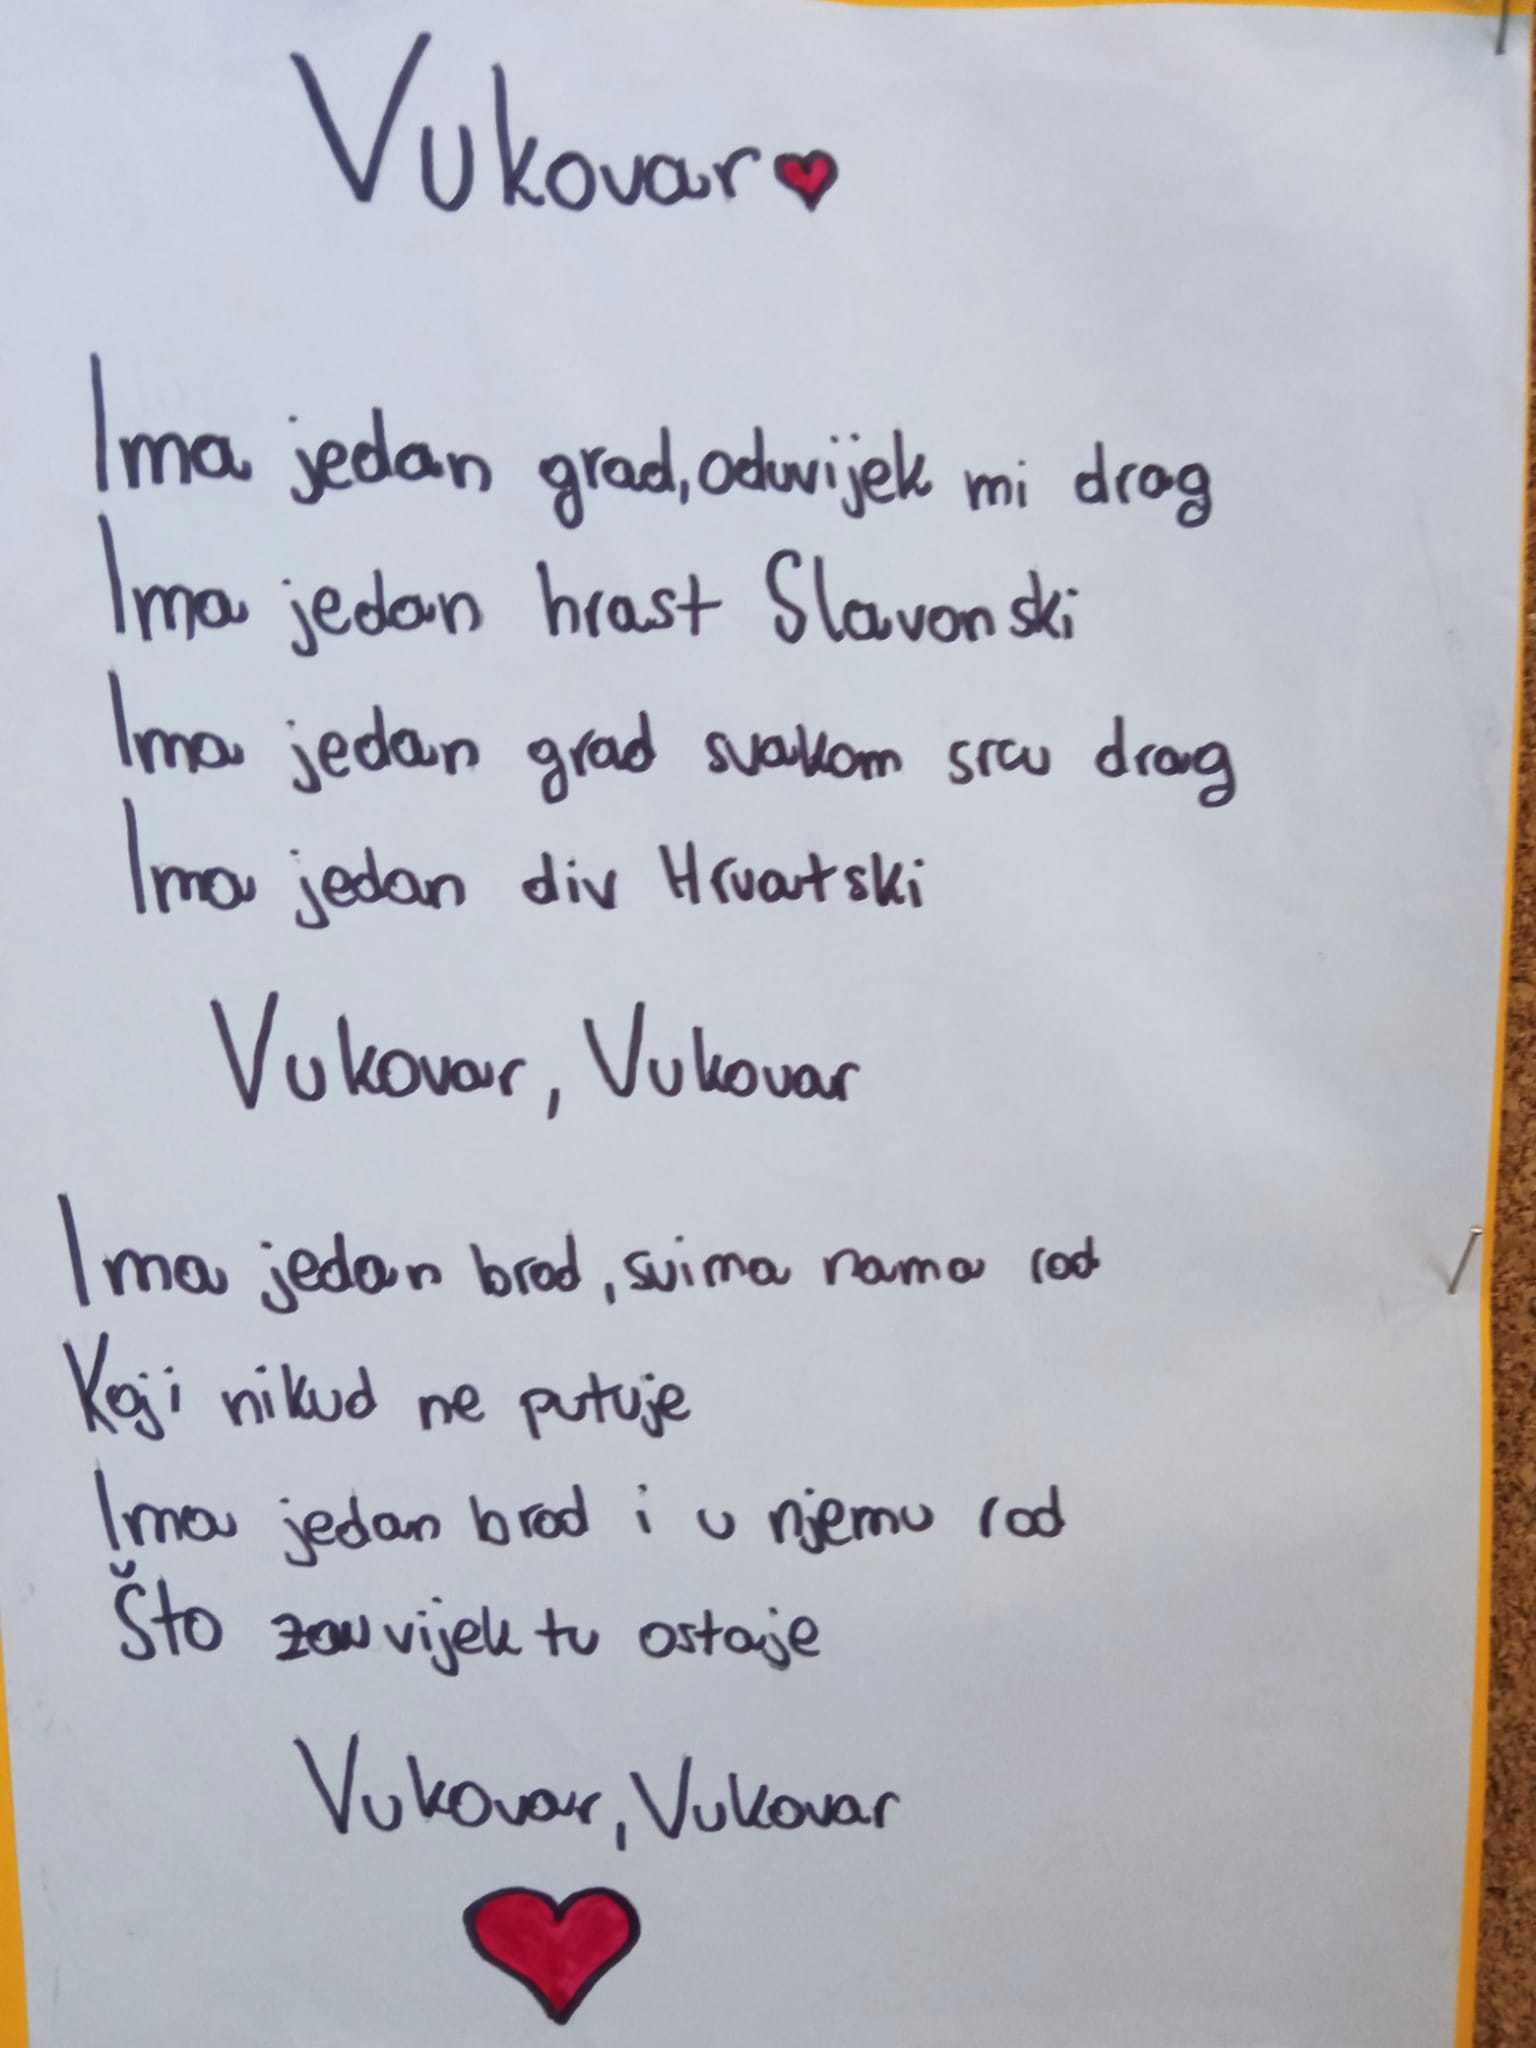 Vukovar
Ima jedan grad, oduvijek mi drag
Ima jedan hrast Slavonski
Ima jedan grad svakom srcu drag
Ima jedan div Hrvatski
Vukovar, Vukovar
Ima jedan brod, svima nama rod
Koji nikud ne putuje
Ima jedan brod i u njemu rod
Što zauvijek tu ostaje
Vukovar, Vukovar